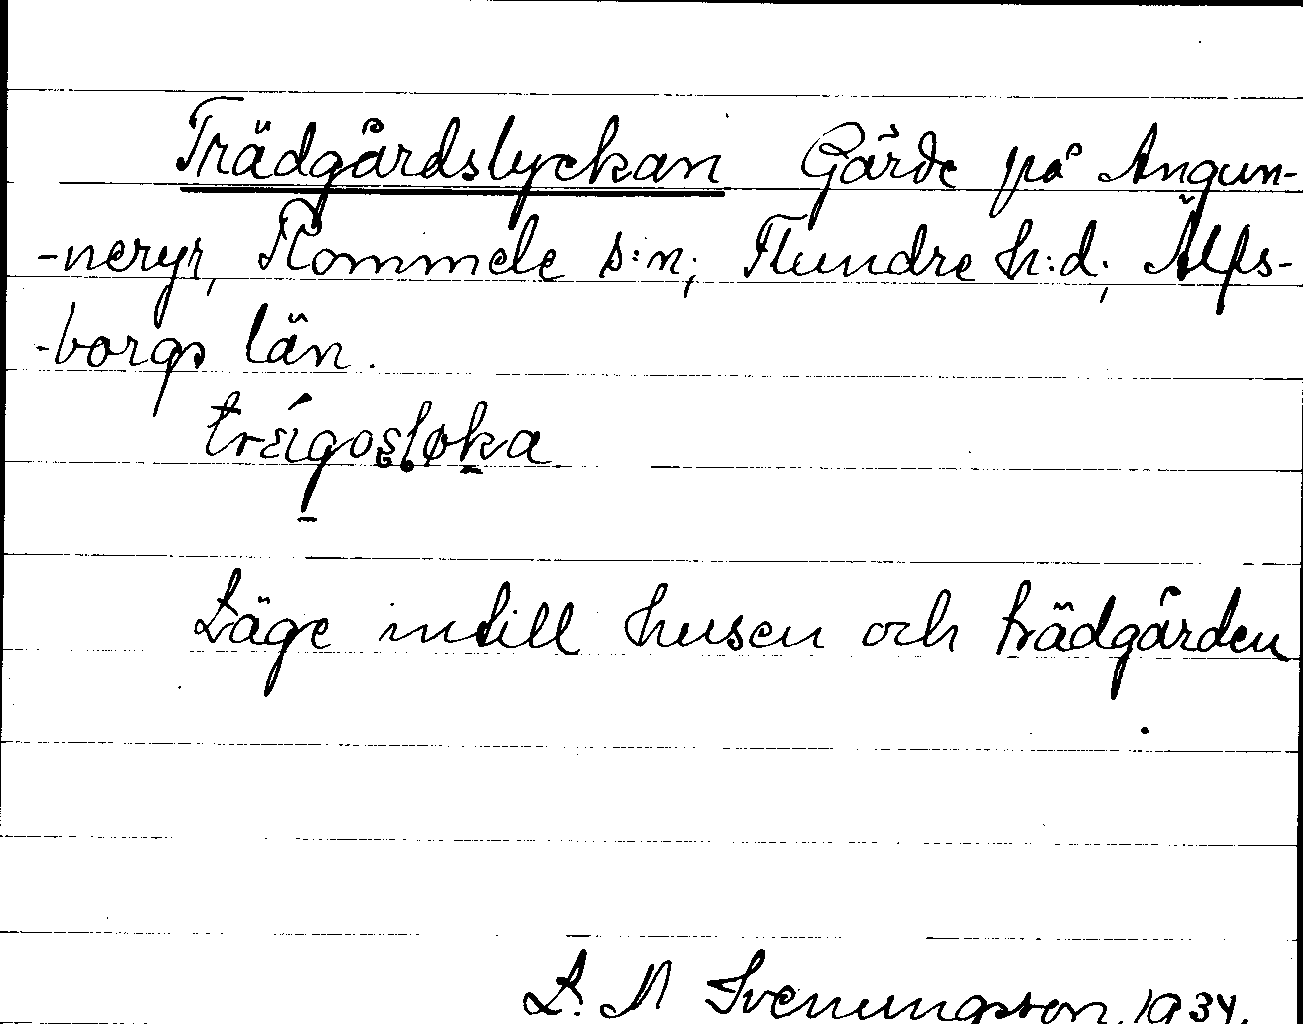 Trädgårdslyckan Gärde på Angun-
-neryr, Rommele s:n; Flundre h:d; Älfs-
-borgs län.
Läge intill husen och trädgården
.
L. M Svenungsson, 1934.